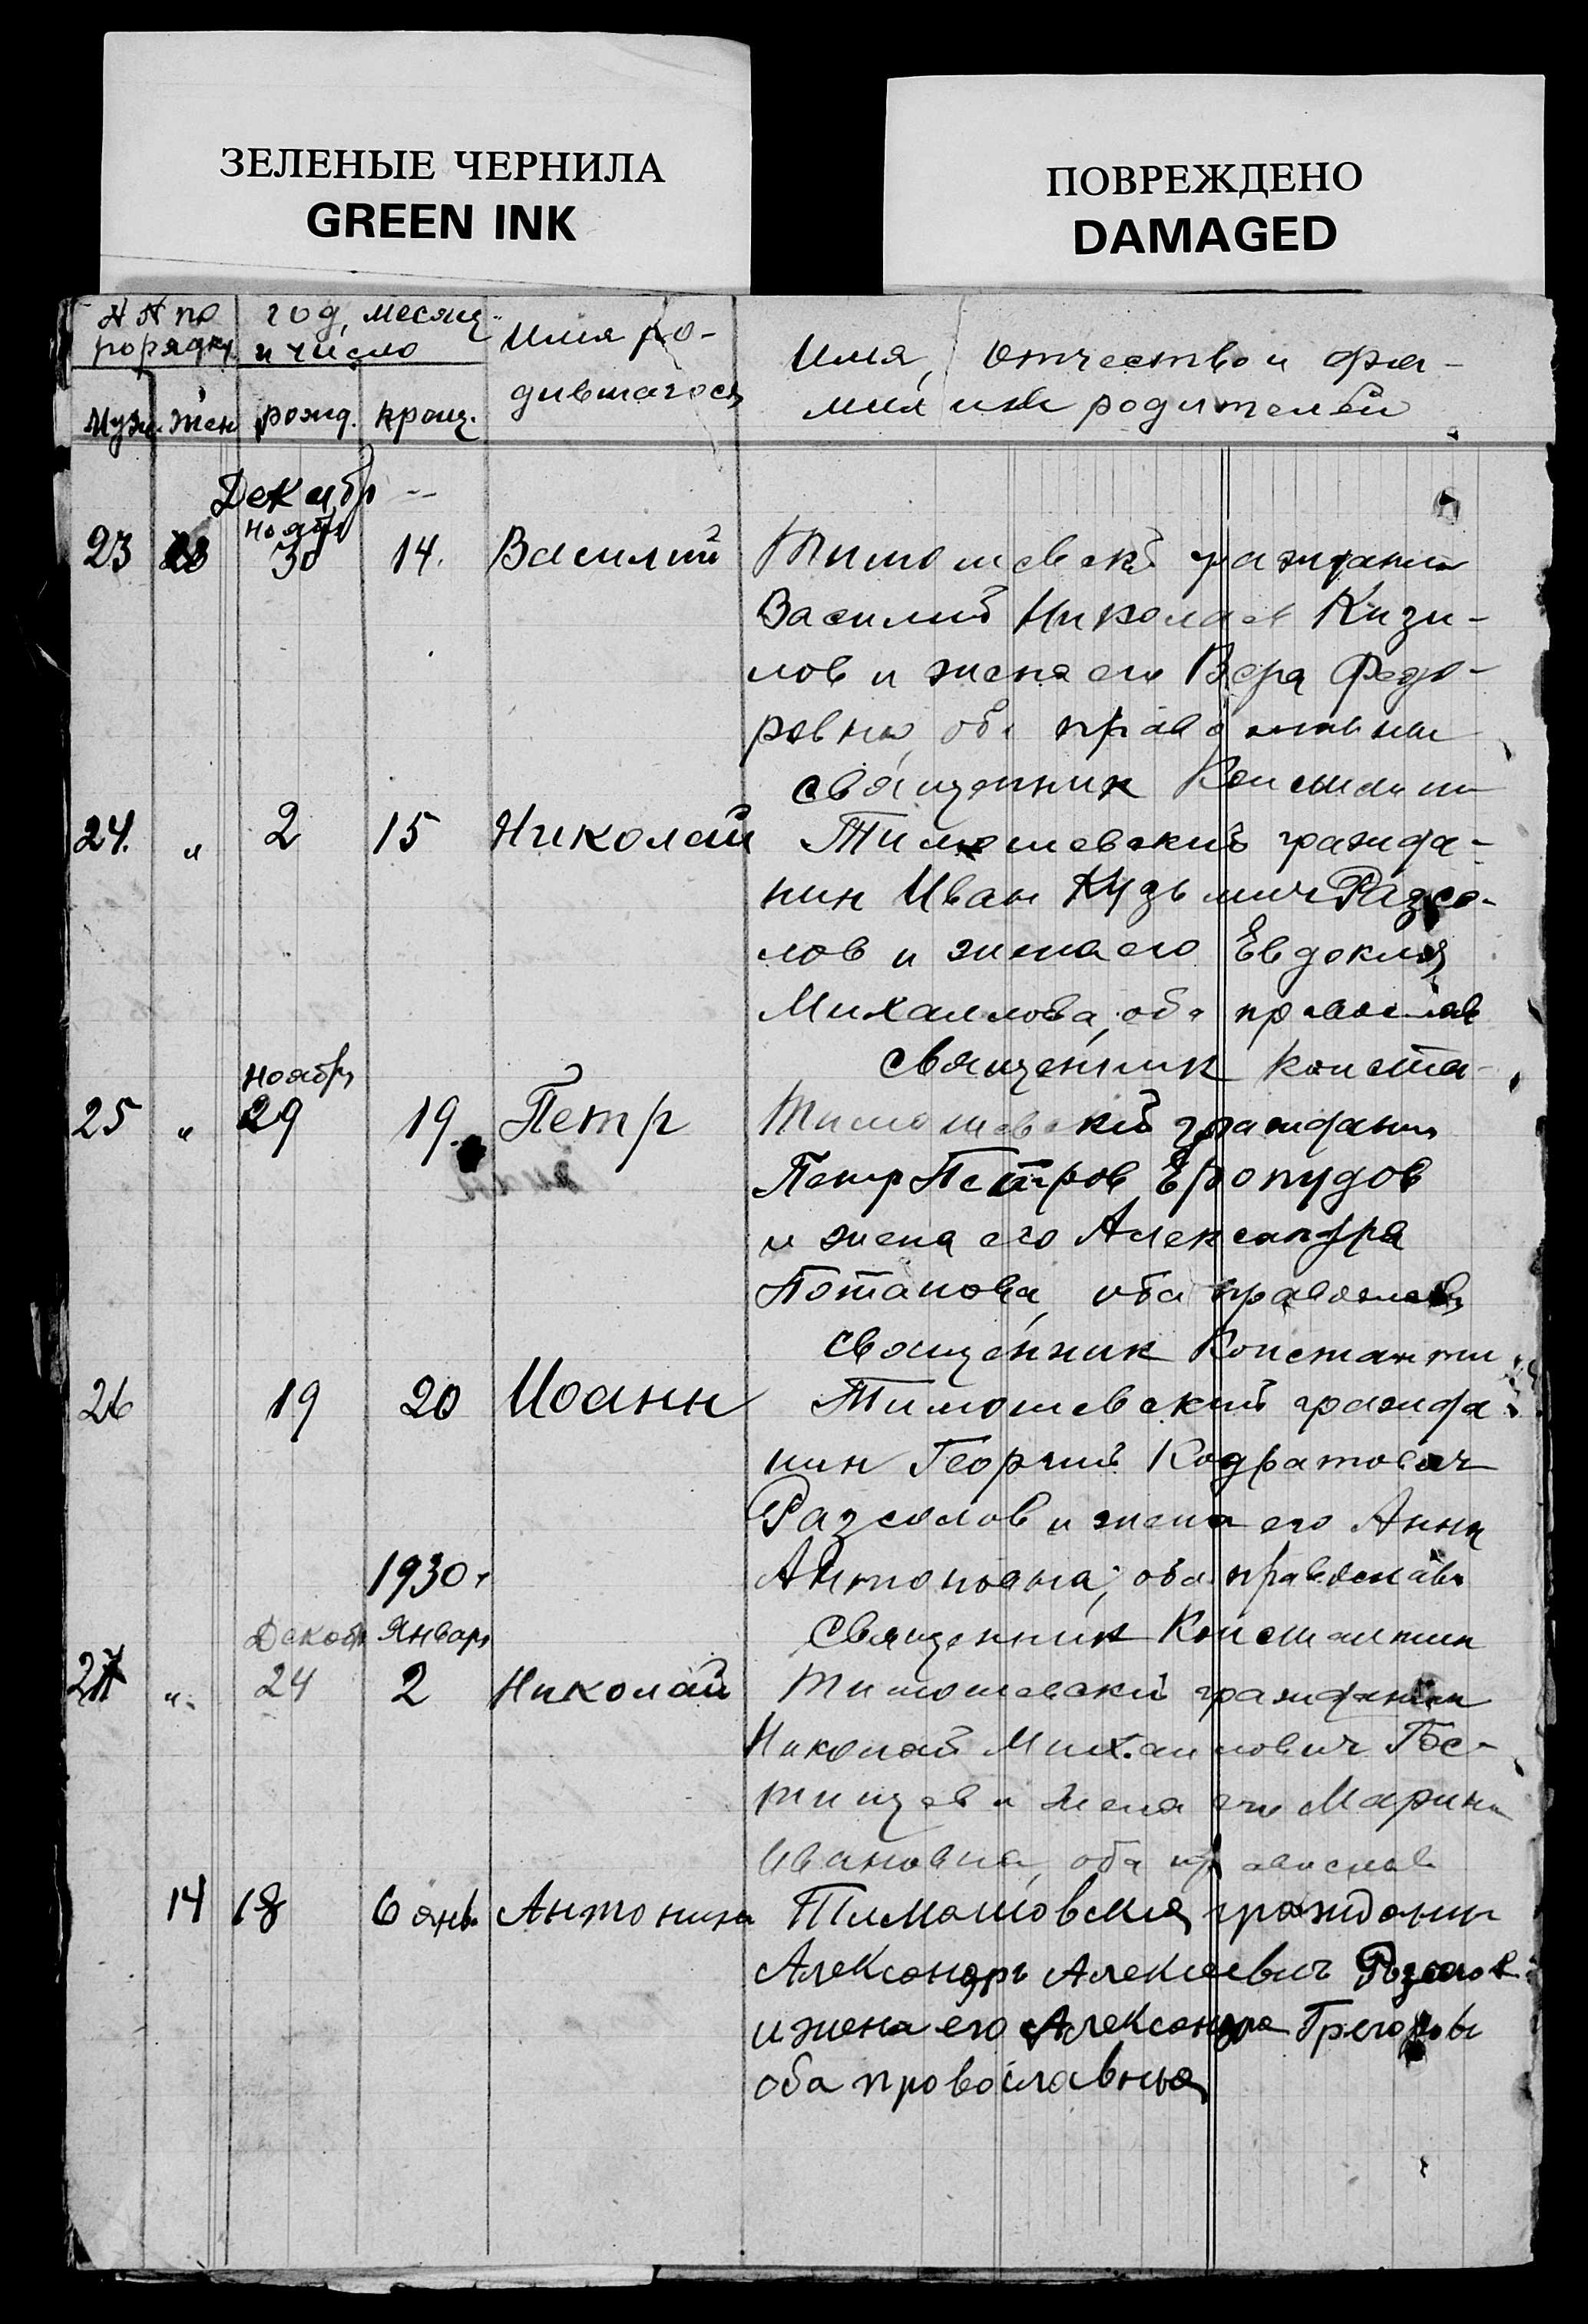 ЗЕЛЕНЫЕ ЧЕРНИЛА
GREEN INK
ПОВРЕЖДЕНО
DAMAGED
№ № по порядку
год, месяц и число
Имя ро-
дившагося
Имя, отчество и фа-
милия родителей
Муж. Жен рожд. крещ.
Декабр --
ноябр
23 30 14. Василий Тимошевский граждани
Василий Николаев Кизи-
лов и жена его Вера Федо-
ровна, оба православны
священник Константи
24. " 2 15 Николай Тимошевский гражда-
нин Иван Кузьмич Разсо-
лов и жена его Евдокия
Михаилова, оба православ
священник Конста-
ноябр
25 " 29 19 Петр Тимошевский граждани
Петр Петров Ебопудов
и жена его Александра
Потапова, оба православ
священник Константи
26 19 20 Иоанн Тимошевский гражда
нин Георгий Кодратович
Разсолов и жена его Анна
1930 г Антоновна, оба православ
Декабр Январ священник Константин
27 " 24 2 Николай Тимошевский гражданин
Николай Михаилович Гос-
тищев и жена его Марина
Ивановна, оба православ
14 18 6 янв. Антонина Тимашовския граждани
Александръ Алексеевич Розсолов
и жена его Александра Грегоровы
оба провославныя